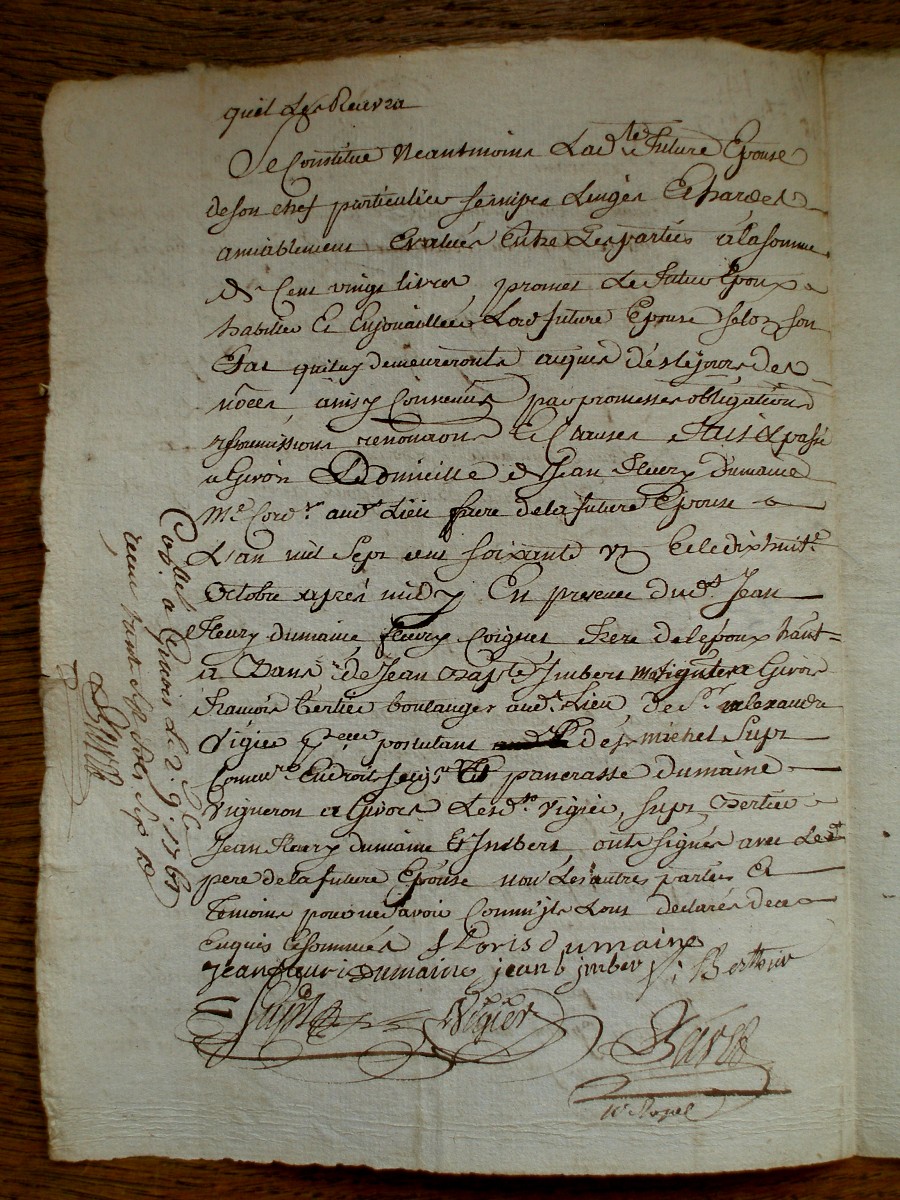 quil les Recevra
Se Constitue Neantmoins Lad.te future Epouse
de son chef particulier ses nipes Linges Et hardes
amiablement Evalués Entre Les parties a la somme
de Cent vingt livres promet Le futur Epoux
habiller Et Enjouailler Lad. future Epouse selon son
Etat qui luy demeureront acquis dés le jour des
nôces ainsy Convenus par promesses obligations
soumissions renonçons Et Clauses fait & passé
a Givors Domicille de Jean fleury Dumaine
M.e Cord.r aud.t Lieu frere de la future Epouse
L'an mil sept cent soixante Et le dix huit.e
Octobre après midy En presence dud.t Jean
fleury dumaine fleury Coignet frere de l'epoux habit-
a de Jean Bap.te Imbert a Givors
francois Bertier boulanger aud.t Lieu de S.r alexandre
Vigier postulant de s.r michel Supt
Comm.re En droits panerasse dumaine
Vigneron a Givors Lesd.ts Vigier, Supt Bertier
Jean fleury dumaine Et Imbert ont signés avec Led.t
pere de la future Epouse non Les autres parties Et
Temoins pour ne sçavoir Comm'ils L'ont declarés de ce
Enquis Et sommés f Loris dumaine
Jean fleuri Dumaine jean b jmber f Berthier
Supt Vigier
Favre
N.re Royal
Con.llé a Givors Le 2. 9.bre 1761
Favre